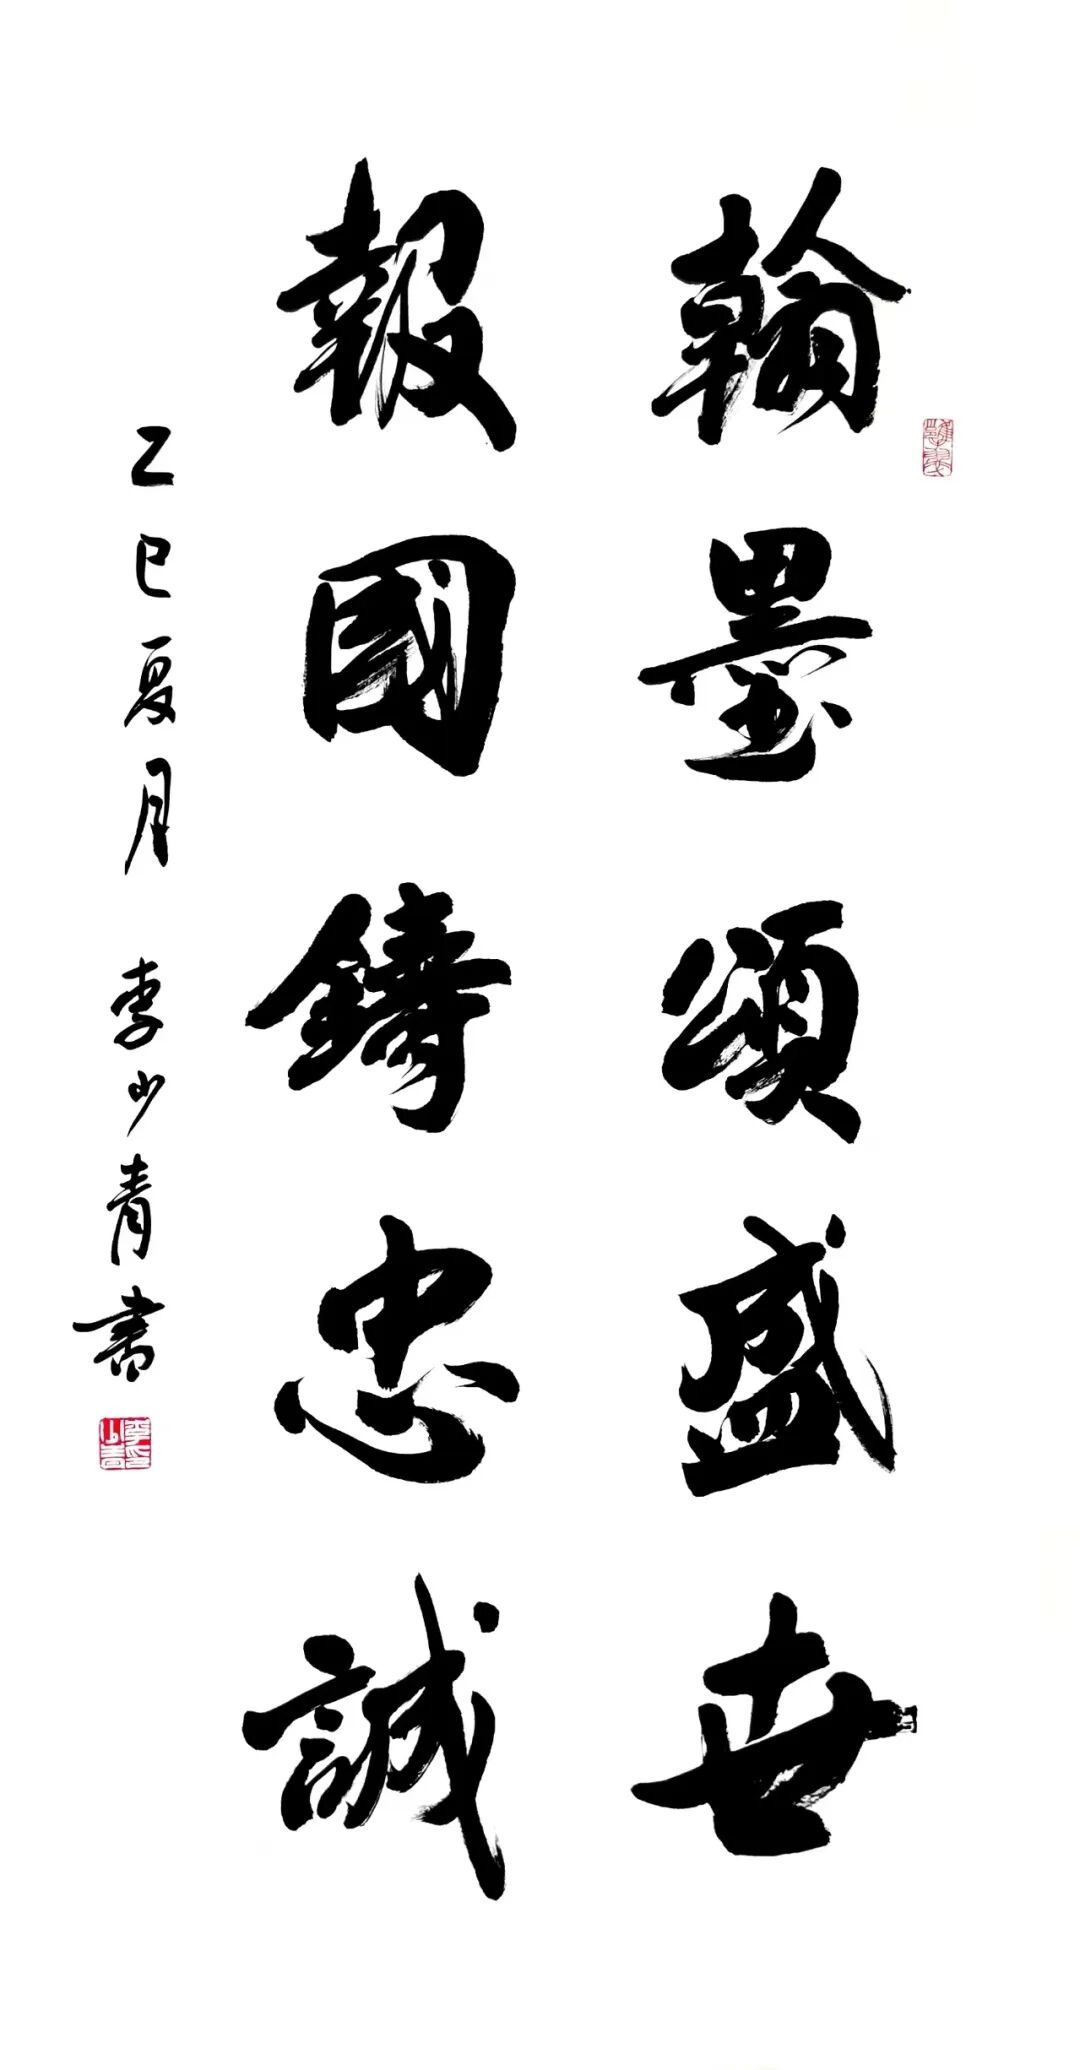 翰墨頌盛世
報國鑄忠誠
乙巳夏月 李少青書